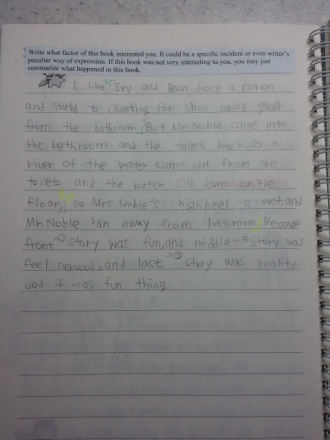 Write what factor of this book interested you. It could be a specific incident or even writer's
peculiar way of expression. If this book was not very interesting to you, you may just
summarize what happened in this book.
I like Ivy and Bean droop a potion
and start to chanting for shoo away ghost
from the bathroom, But Mr. Noble came into
the bathroom and the toilet so a
river of the water came out from the
toilet, and the water still on the
floor, so Mrs. Noble's high heel is wet, and
Mr. Noble ran away from bathroom. Because
front story was fun, and middle story was
feel nervous, and last story was reality
and it was fun thing.